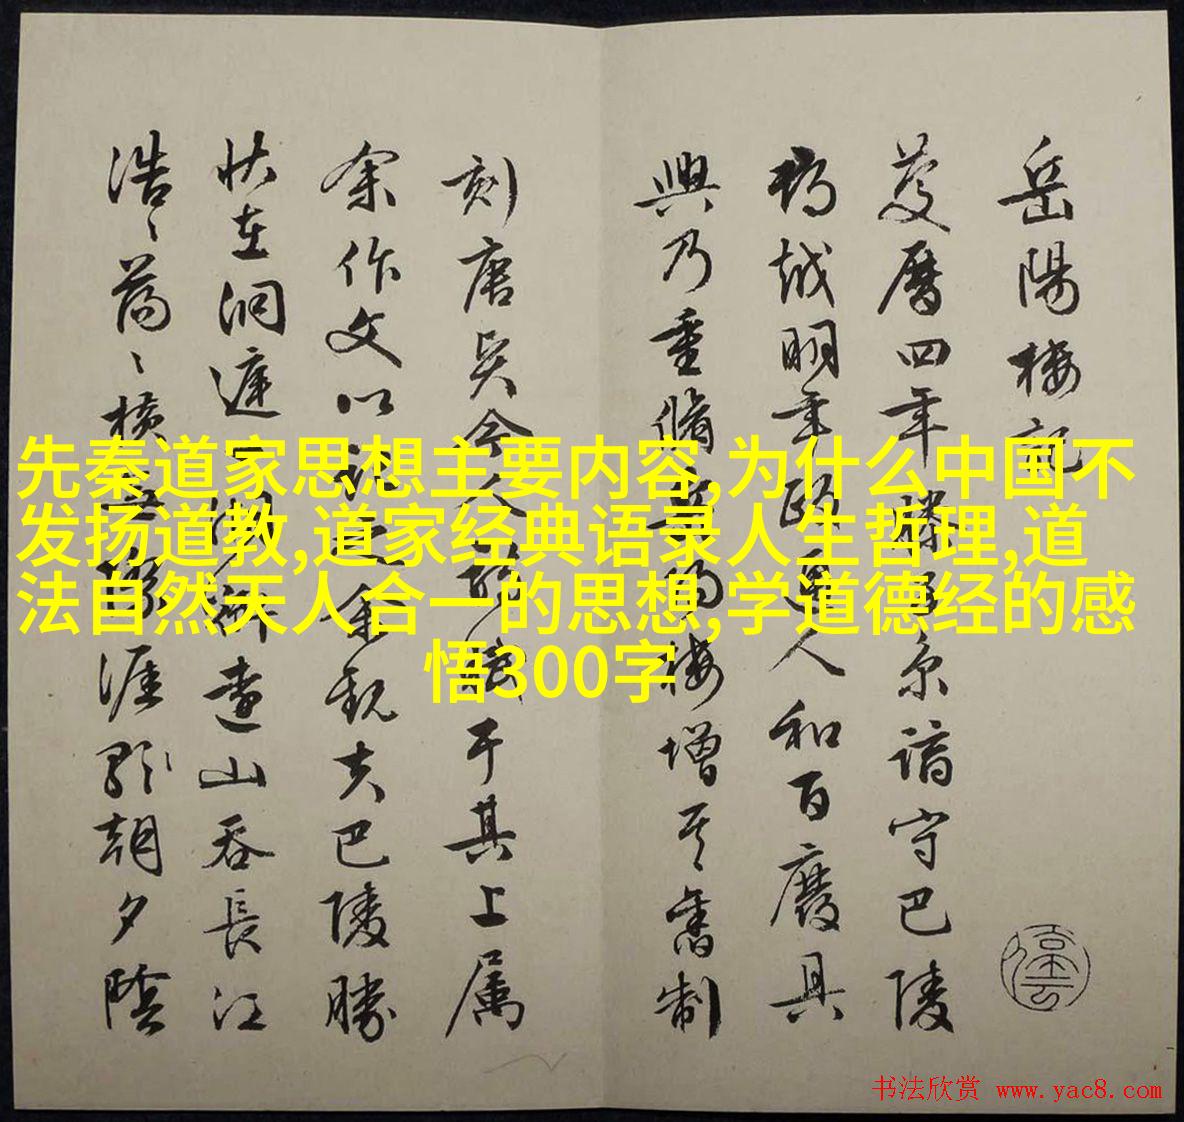 先秦道家思想主要内容,为什么中国不
发扬道教,道家经典语录人生哲理,道
法自然天人合一的思想,学道德经的感
悟300字
岳陽樓記
慶曆四年滕子京謫守巴陵
郡越明年政通人和百廢具
興乃重脩岳陽樓增其舊制
刻唐賢今人詩賦于其上属
余作文以記之余觀夫巴陵勝
狀在洞庭一湖銜遠山吞長江
浩〻蕩〻橫無際涯朝夕陰
书法欣赏 www.yac8.com